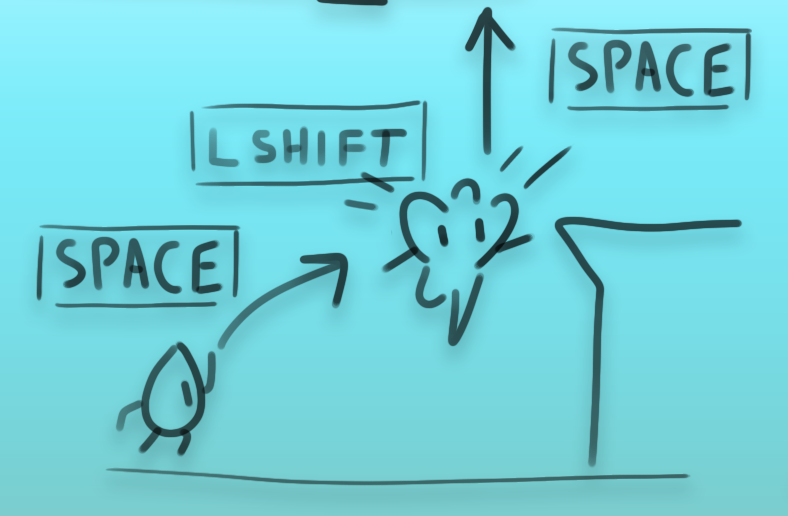 SPACE
L SHIFT
SPACE